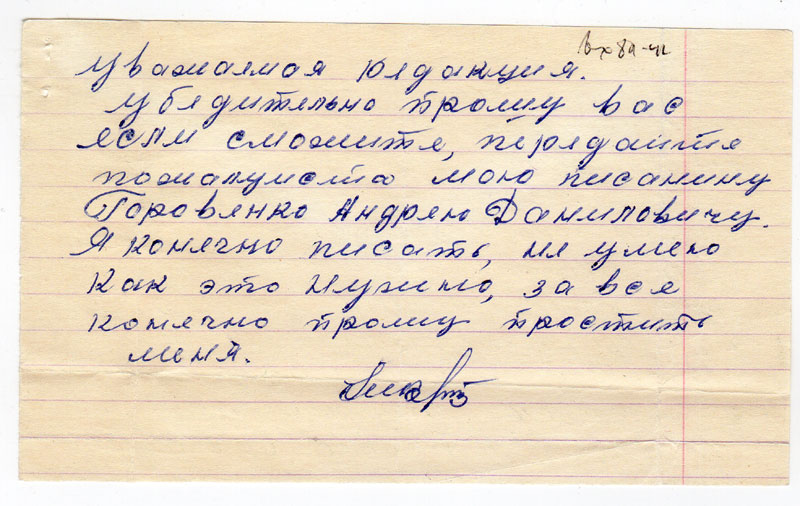 вх 89-41
Уважаемая редакция.
Убедительно прошу вас
если сможите, передайте
пожалуйста мою писанину
Поровенко Андрею Даниловичу.
Я конечно писать, не умею
как это нужно, за все
конечно прошу простить
меня.